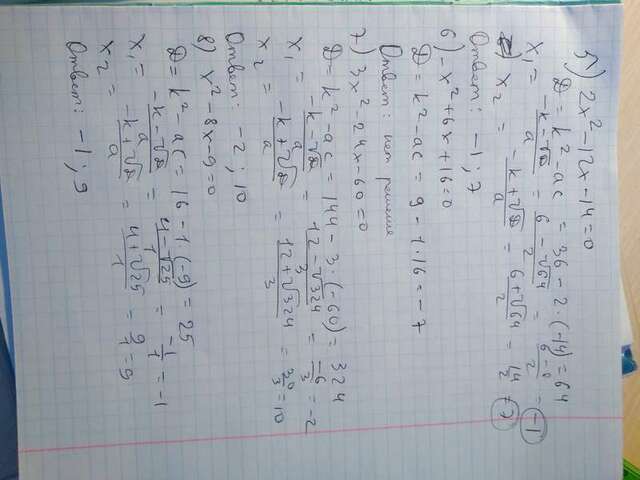 5) 2x²-12x-14=0
D = k²-ac = 36-2·(-14)=64
x₁ = (-k-√D)/a = (6-√64)/2 = /2 = -1
x₂ = (-k+√D)/a = (6+√64)/2 = 14/2 = 7
Ответ: -1; 7
6) -x²+6x+16=0
D = k²-ac = 9-1·16=-7
Ответ: нет решения
7) 3x²-24x-60=0
D = k²-ac = 144-3·(-60)=324
x₁ = (-k-√D)/a = (12-√324)/3 = -6/3 = -2
x₂ = (-k+√D)/a = (12+√324)/3 = 30/3 = 10
Ответ: -2; 10
8) x²-8x-9=0
D = k²-ac = 16-1(-9) = 25
x₁ = (-k-√D)/a = (4-√25)/1 = -1/1 = -1
x₂ = (-k+√D)/a = (4+√25)/1 = 9/1 = 9
Ответ: -1; 9